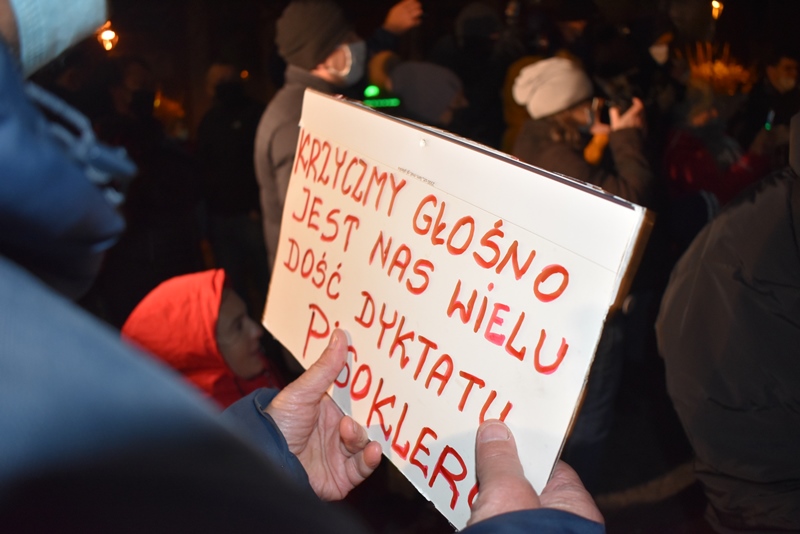 KRZYCZMY GŁOŚNO
JEST NAS WiELU
DOŚĆ DYKTATU
PiSOKLERO